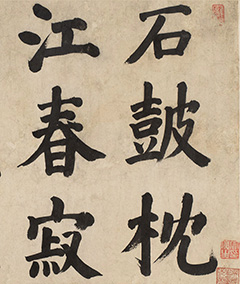 石皷枕
江春寂